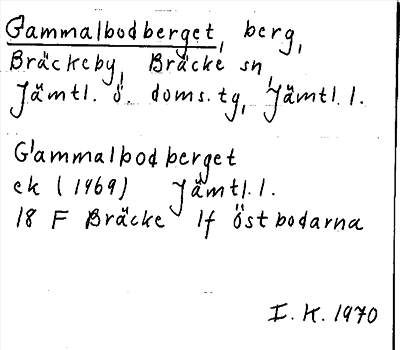 Gammalbodberget, berg,
Bräckeby, Bräcke sn,
Jämtl. ö. doms.tg, Jämtl. l.
Gammalbodberget
ek (1969) Jämtl. l.
18 F Bräcke 1f Östbodarna
I. K. 1970